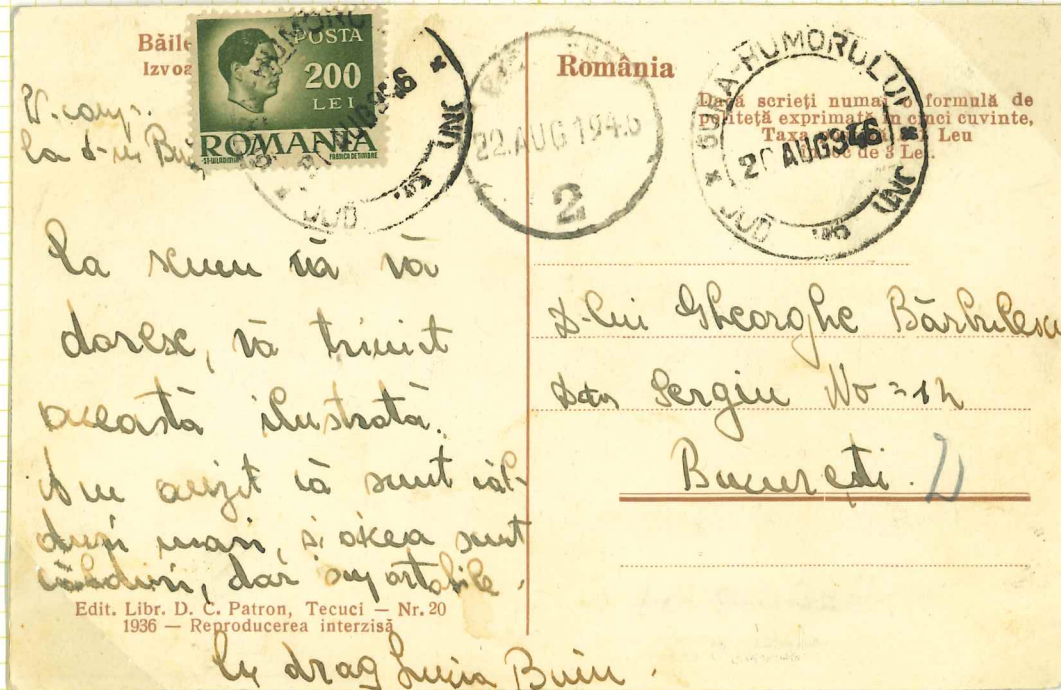 Băile
Izvoa
POSTA
200
LEI
ROMANIA
FABRICA DE TIMBRE
V. camp.
La d-na
22.AUG 1946
2
România
Dacă scrieți numai formulă de
politeță exprimată în cinci cuvinte,
Taxa Leu
loc de 3 Lei.
GURA-HUMORULUI
20 AUG 946
JUD
vă
doresc, vă trimit
această ilustrată.
Am auzit că sunt căl-
duri mari, și aicea sunt
călduri, dar suportabile.
Edit. Libr. D. C. Patron, Tecuci — Nr. 20
1936 — Reproducerea interzisă
Cu drag Lucia Buiu.
D-lui Gheorghe Bărbulescu
Sergiu No = 12
București.